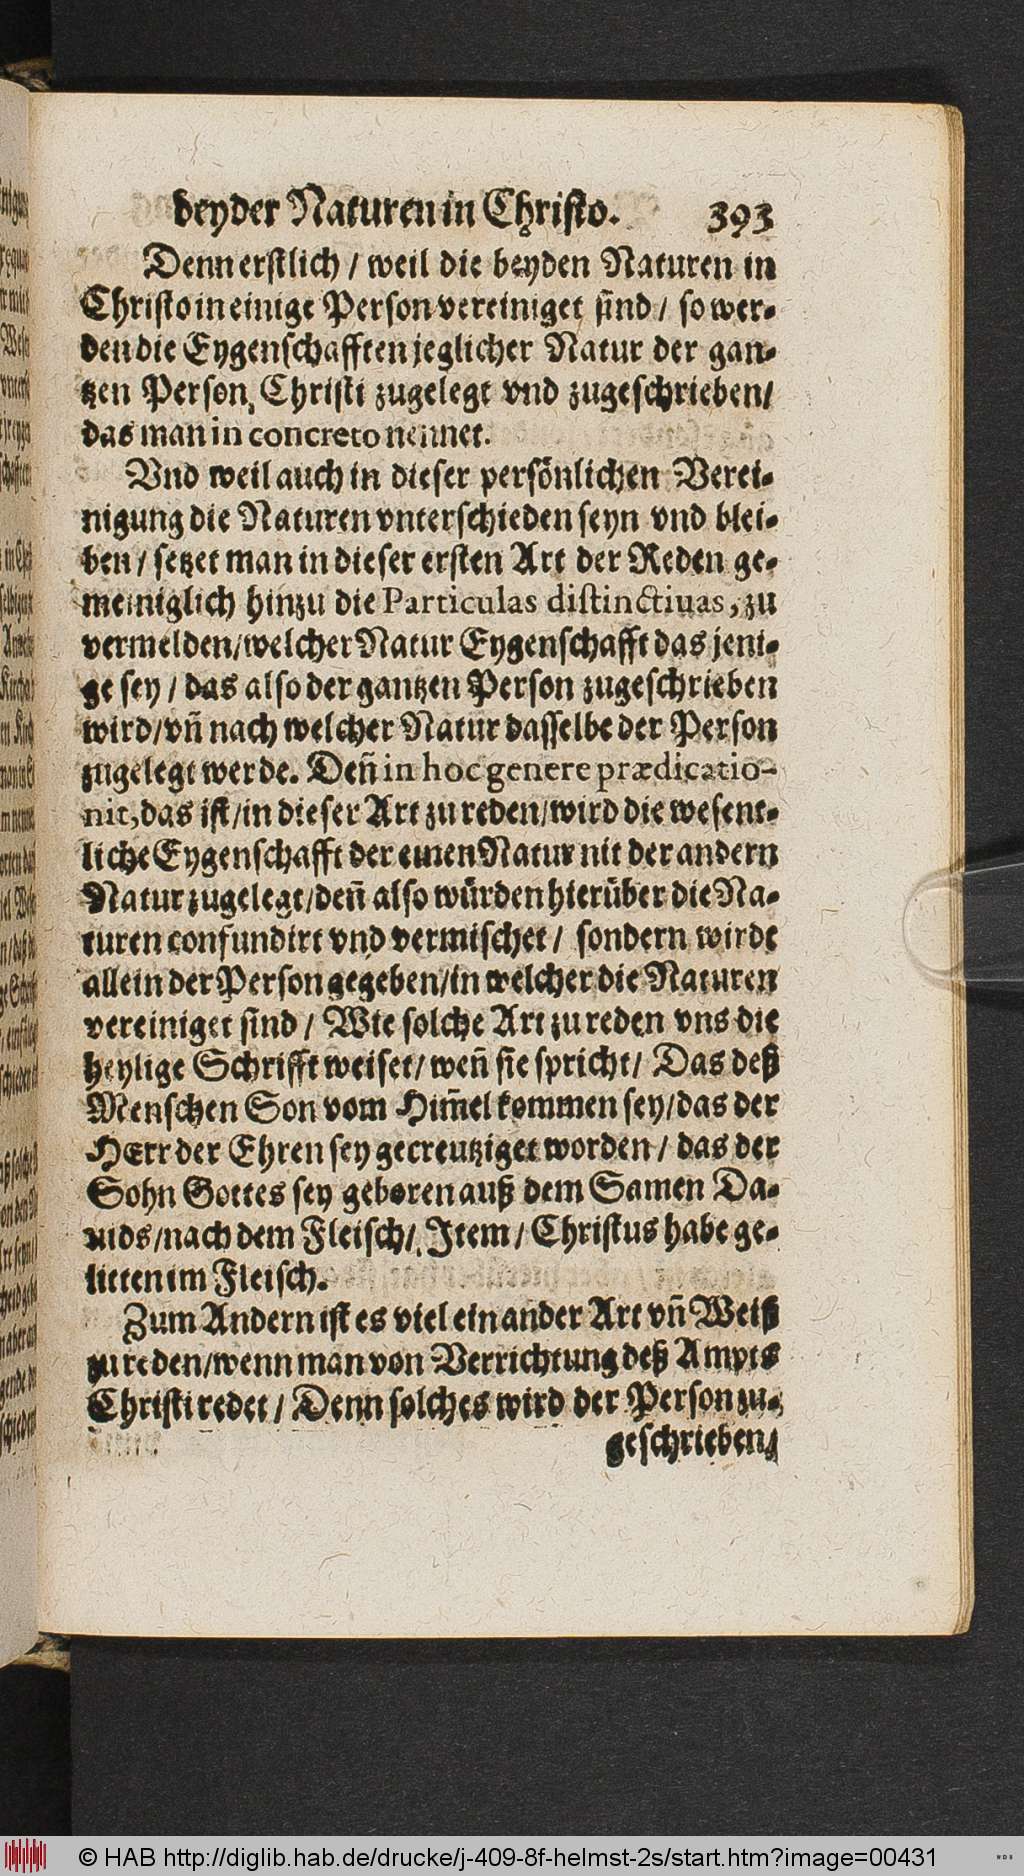 beyder Naturen in Christo. 393
Denn erstlich / weil die beyden Naturen in
Christo in einige Person vereiniget sind / so wer-
den die Eygenschafften jeglicher Natur der gan-
tzen Person Christi zugelegt vnd zugeschrieben /
das man in concreto nennet.
Vnd weil auch in dieser persönlichen Verei-
nigung die Naturen vnterschieden seyn vnd blei-
ben / setzet man in dieser ersten Art der Reden ge-
meiniglich hinzu die Particulas distinctiuas, zu
vermelden / welcher Natur Eygenschafft das jeni-
ge sey / das also der gantzen Person zugeschrieben
wird / vñ nach welcher Natur dasselbe der Person
zugelegt werde. Deñ in hoc genere prædicatio-
nit, das ist / in dieser Art zu reden / wird die wesent-
liche Eygenschafft der einen Natur nit der andern
Natur zugelegt / deñ also würden hierüber die Na-
turen confundirt vnd vermischet / sondern wirdt
allein der Person gegeben / in welcher die Naturen
vereiniget sind / Wie solche Art zu reden vns die
heylige Schrifft weiset / weñ sie spricht / Das deß
Menschen Son vom Him̃el kommen sey / das der
HErr der Ehren sey gecreutziget worden / das der
Sohn Gottes sey geboren auß dem Samen Da-
uids / nach dem Fleisch / Item / Christus habe ge-
litten im Fleisch.
Zum Andern ist es viel ein ander Art vñ Weiß
zu reden / wenn man von Verrichtung deß Ampts
Christi redet / Denn solches wird der Person zu-
geschrieben /
© HAB http://diglib.hab.de/drucke/j-409-8f-helmst-2s/start.htm?image=00431